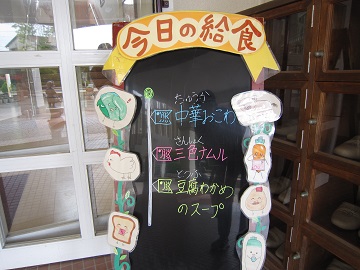 今日の給食
ちゅうか
中華おこわ
さんしょく
三色ナムル
とうふ
豆腐わかめ
のスープ